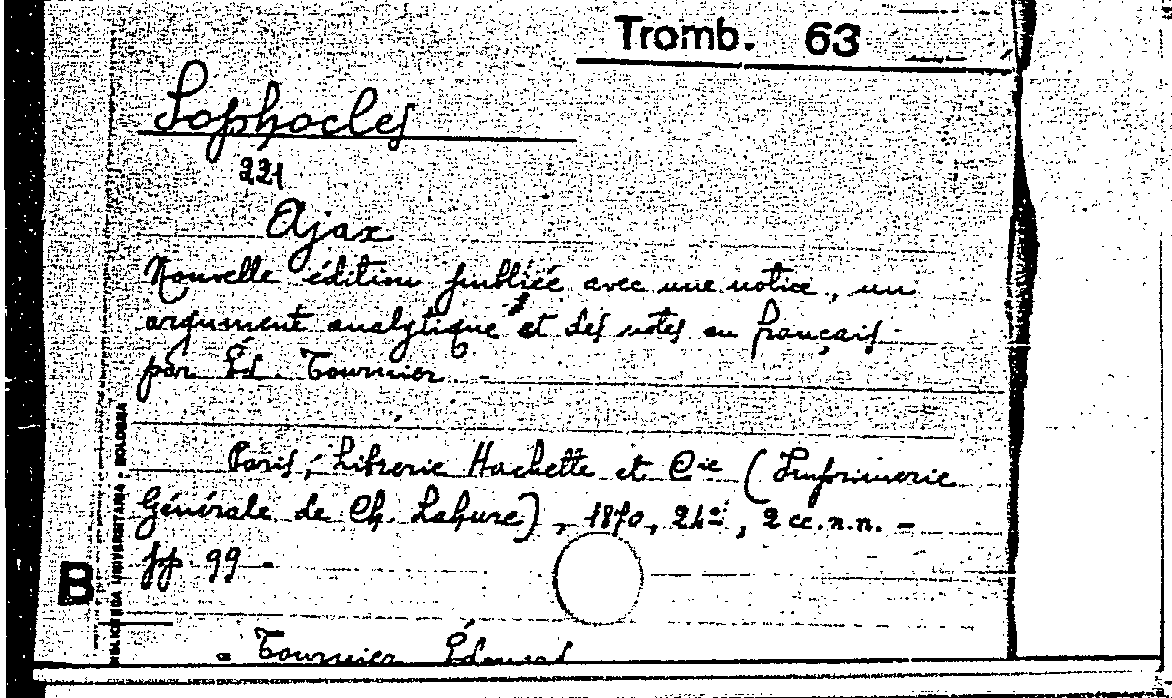 Tromb. 63
Sophocles
221
Ajax
Nouvelle édition publiée avec une notice, un
argument analytique et des notes en français
par Ed. Tournier
Paris, Librerie Hachette et Cie (Imprimerie
Générale de Ch. Lahure), 1870, 24º, 2 cc.n.n. -
pp 99 -
B
BIBLIOTECA UNIVERSITARIA - BOLOGNA
= Tournier Édouard